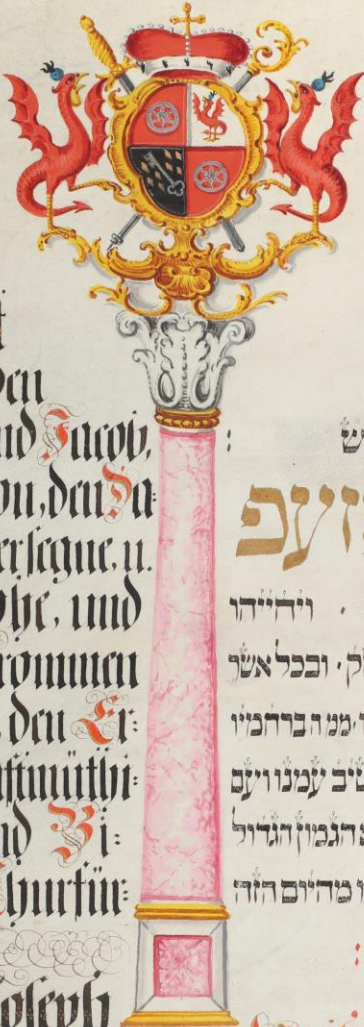 nd Jacob,
on, den Da-
ersegne, u.
öhe, und
rommen
den Er-
nftmüthi-
nd Bi-
Churfür-
Joseph
ויחייהו
ובכל אשר
ממה ברחמיו
טיב עמנו ועם
הגמון הגדול
מהיום הזה